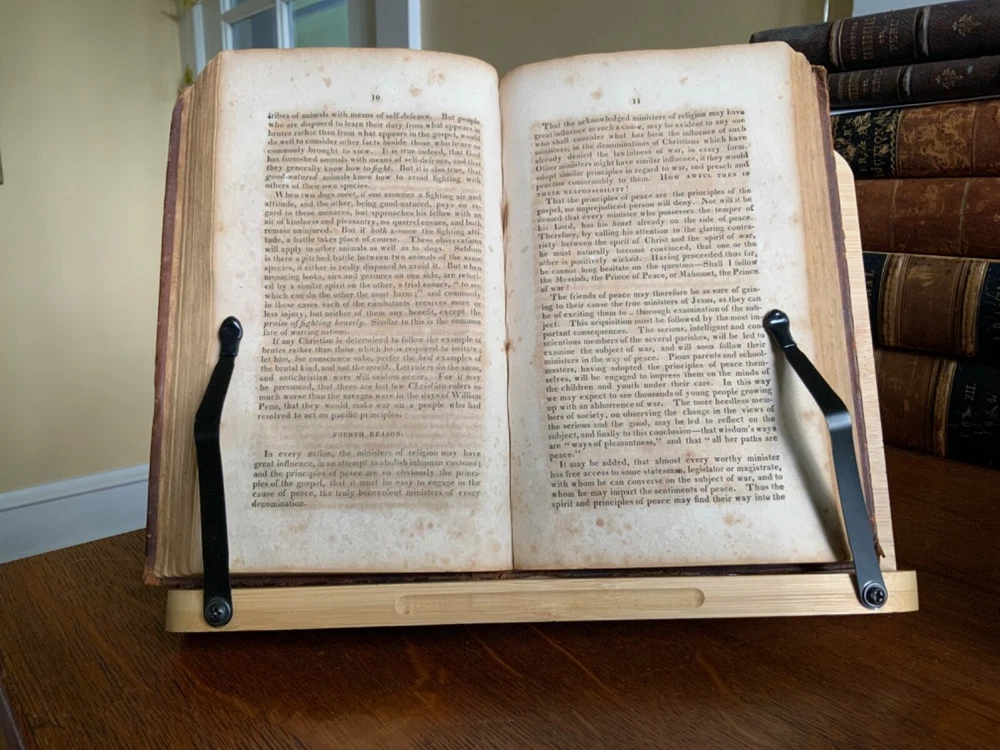 10
tribes of animals with means of self-defence. But people
who are disposed to learn their duty from what appears in
brutes rather than from what appears in the gospel, would
do well to consider other facts beside those which are so
commonly brought to view. It is true indeed, that God
has furnished animals with means of self-defence, and that
they generally know how to fight. But it is also true, that
good-natured animals know how to avoid fighting with
others of their own species.
When two dogs meet, if one assumes a fighting air and
attitude, and the other, being good-natured, pays no re-
gard to these menaces, but approaches his fellow with an
air of kindness and pleasantry, no quarrel ensues, and both
remain uninjured. But if both assume the fighting atti-
tude, a battle takes place of course. These observations
will apply to other animals as well as to dogs. Seldom
is there a pitched battle between two animals of the same
species, if either is really disposed to avoid it. But when
menacing looks, airs and gestures on one side, are return-
ed by a similar spirit on the other, a trial ensues, "to see
which can do the other the most harm;" and commonly
in these cases, each of the combatants receives more or
less injury, but neither of them any benefit, except the
praise of fighting bravely. Similar to this is the common
fate of warring nations.
If any Christian is determined to follow the example of
brutes rather than those which he is required to imitate;
let him, for conscience sake, prefer the best examples of
the brutal kind, and not the worst. Let rulers do the same,
and antichristian wars will seldom occur. For it may
be presumed, that there are but few Christian rulers so
much worse than the savages were in the days of William
Penn, that they would make war on a people who had
resolved to act on pacific principles.
FOURTH REASON.
In every nation, the ministers of religion may have
great influence, in an attempt to abolish inhuman customs;
and the principles of peace are so obviously the princi-
ples of the gospel, that it must be easy to engage in the
cause of peace, the truly benevolent ministers of every
denomination.
11
That the acknowledged ministers of religion may have
great influence in such a cause, may be evident to any one
who shall consider what has been the influence of such
ministers, in the denominations of Christians which have
already denied the lawfulness of war, in every form.
Other ministers might have similar influence, if they would
adopt similar principles in regard to war, and preach and
practise conformably to them. HOW AWFUL THEN IS
THEIR RESPONSIBILITY!
That the principles of peace are the principles of the
gospel, no unprejudiced person will deny. Nor will it be
denied that every minister who possesses the temper of
his Lord, has his heart already on the side of peace.
Therefore, by calling his attention to the glaring contra-
riety between the spirit of Christ and the spirit of war,
he must naturally become convinced, that one or the
other is positively wicked. Having proceeded thus far,
he cannot long hesitate on the question—Shall I follow
the Messiah, the Prince of Peace, or Mahomet, the Prince
of war?
The friends of peace may therefore be as sure of gain-
ing to their cause the true ministers of Jesus, as they can
be of exciting them to thorough examination of the sub-
ject. This acquisition must be followed by the most im-
portant consequences. The serious, intelligent and con
scientious members of the several parishes, will be led to
examine the subject of war, and will soon follow their
ministers in the way of peace. Pious parents and school-
masters, having adopted the principles of peace them-
selves, will be engaged to impress them on the minds of
the children and youth under their care. In this way
we may expect to see thousands of young people growing
up with an abhorrence of war. The more heedless mem-
bers of society, on observing the change in the views of
the serious and the good, may be led to reflect on the
subject, and finally to this conclusion—that wisdom's ways
are "ways of pleasantness," and that "all her paths are
peace."
It may be added, that almost every worthy minister
has free access to some statesman, legislator or magistrate,
with whom he can converse on the subject of war, and to
whom he may impart the sentiments of peace. Thus the
spirit and principles of peace may find their way into the
PERU
XII.